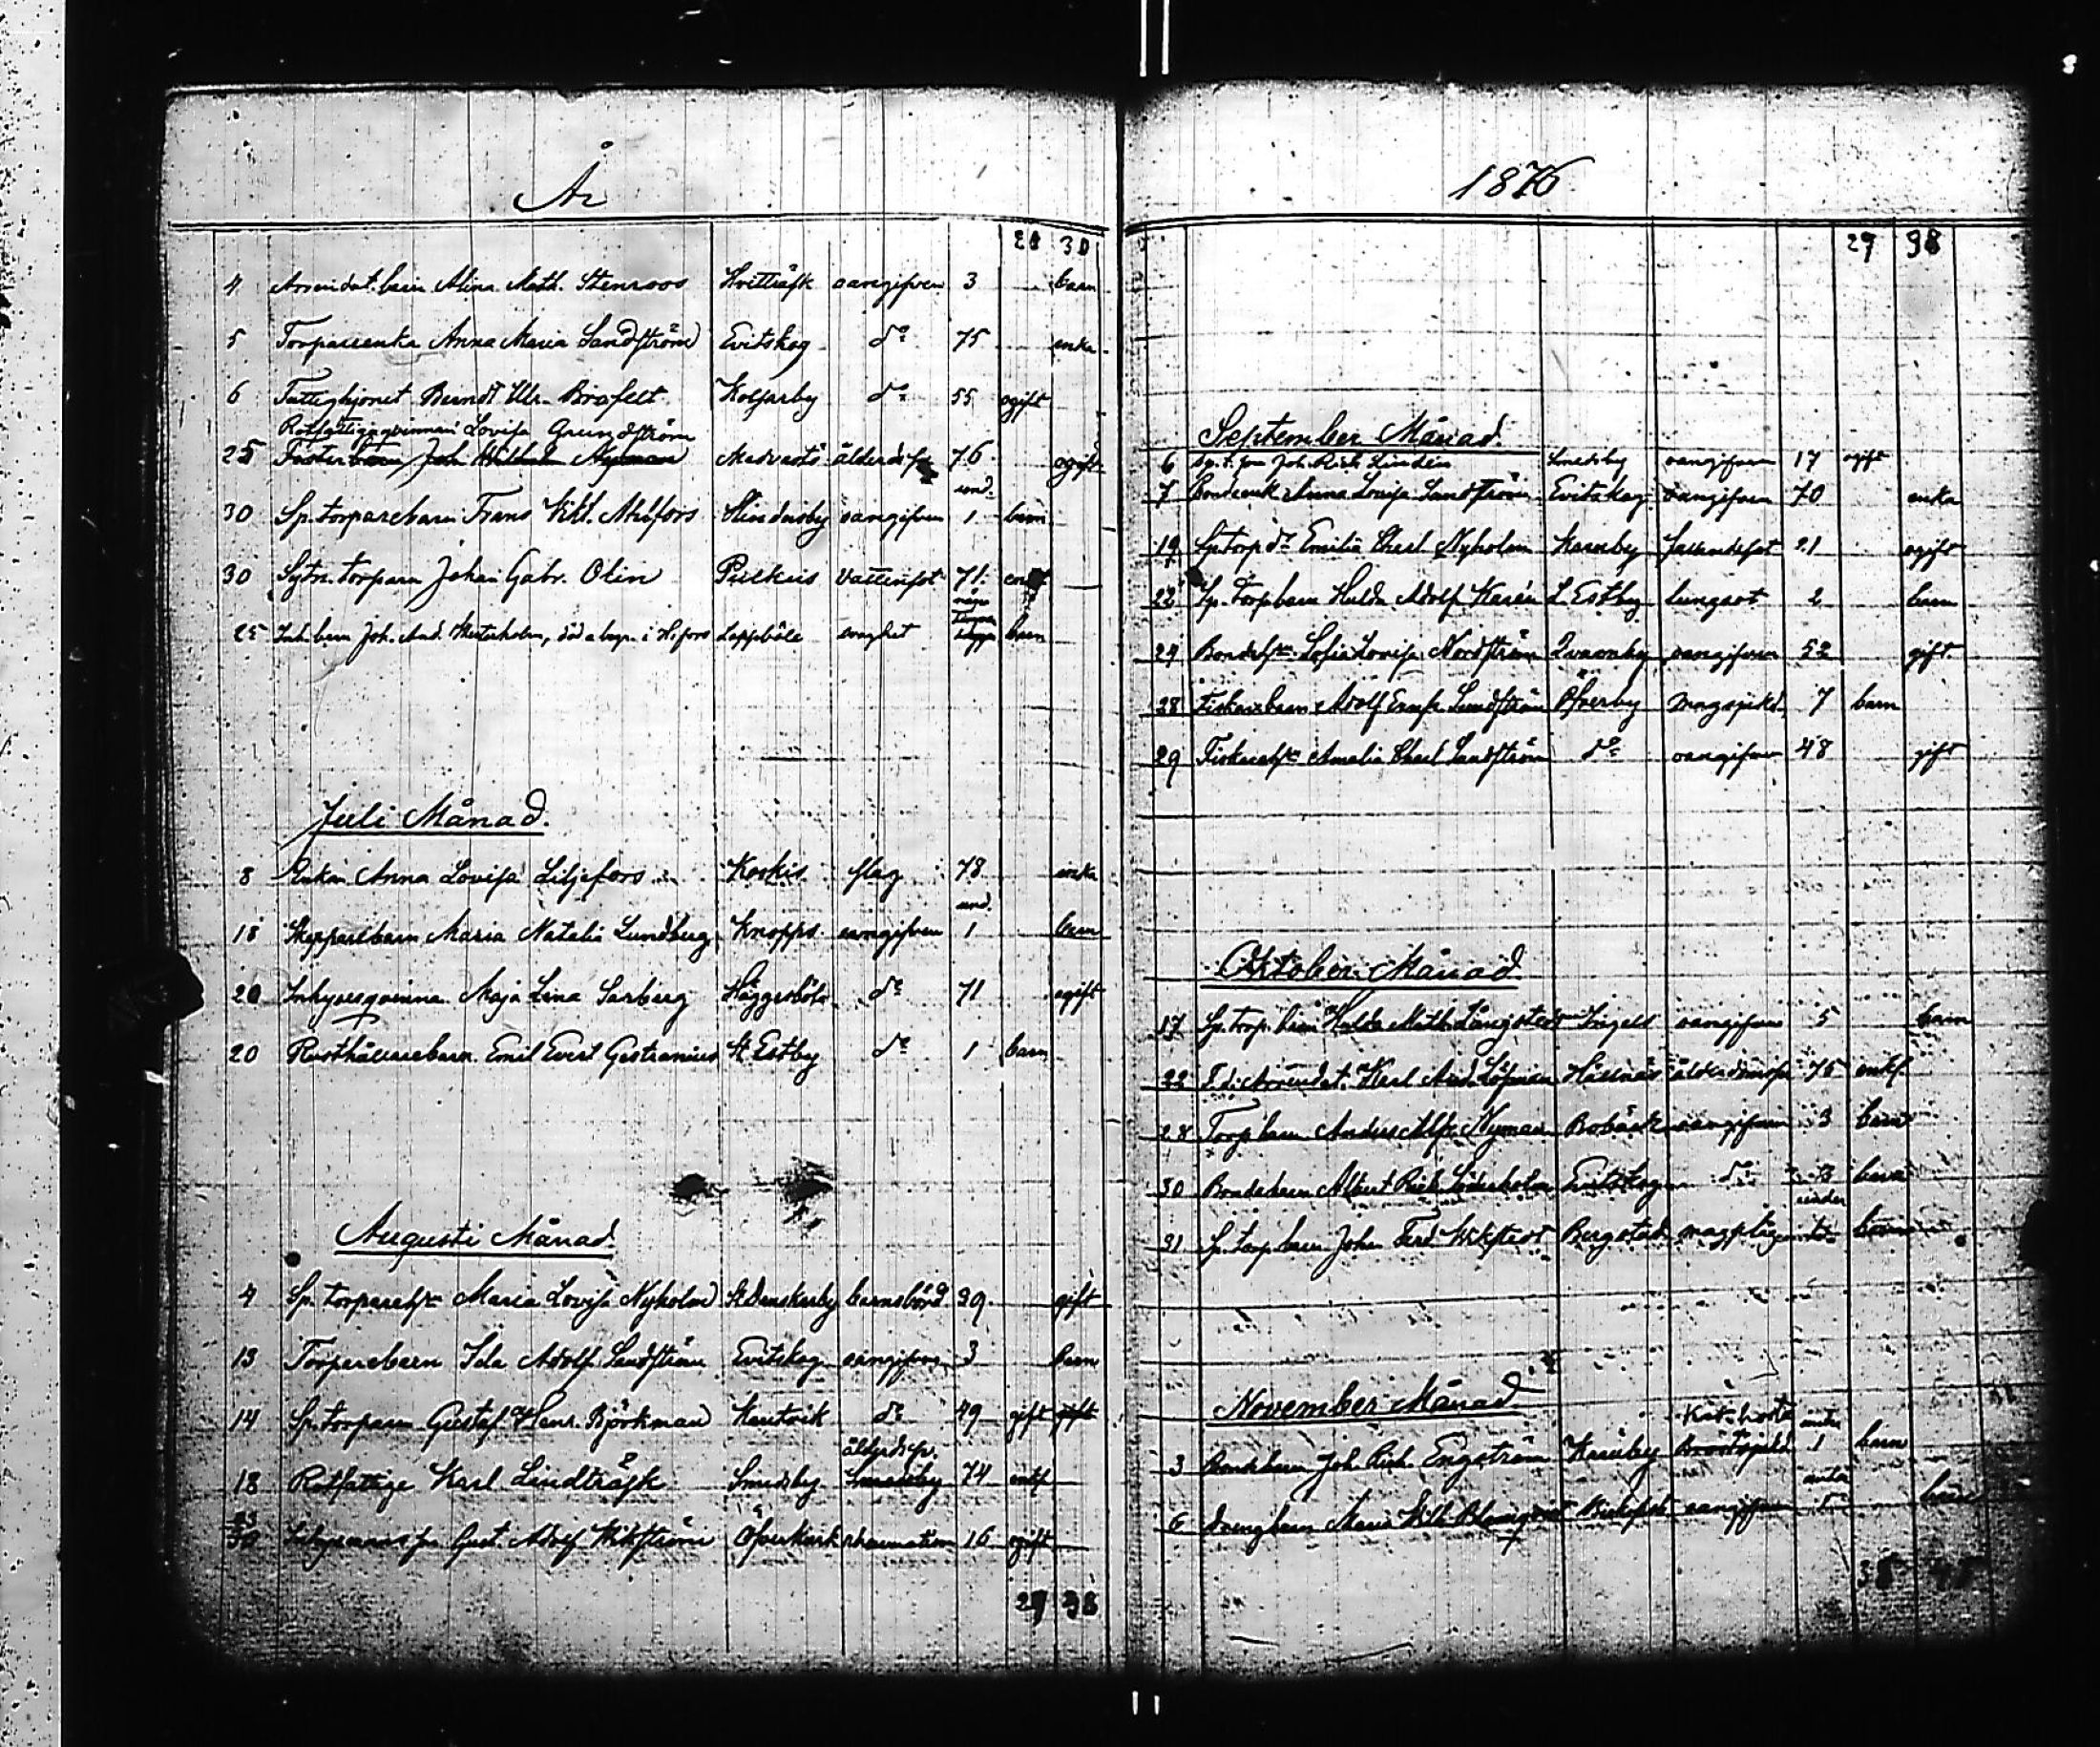 År
28 30
4 Arrendat. barn Alina Math. Stenroos Hvitträsk oangifven 3 barn
5 Torpareenka Anna Maria Sandström Evitskog do 75 enka
6 Fattighjonet Berndt Brofelt Kolsarby do 55 ogift
Rotfattigaqvinnan Lovisa Grundström
25 Joh Wilhelm Nyman Medvastö 76 ogift
und.
30 Sp. torparebarn Frans Vikt. Ahlfors oangifven 1 barn
30 Sytn. torparen Johan Gabr. Olin vattusot 71
25 barn Joh. And. död i H:fors Lappböle svaghet barn
Juli Månad.
8 Enkan Anna Lovisa Liljefors slag 78 enka
und.
18 Skepparebarn Maria Natalia Lundberg Knopps oangifven 1 barn
20 Inhysesqvinna Maja Lina Häggesböle do 71 ogift
20 Rusthållarebarn Emil Evert Gestranius St Estby do 1 barn
Augusti Månad.
4 Sp. torparehu Maria Lovisa Nyholm St Danskarby barnsbörd 39 gift
13 Torparebarn Ida Adolf. Sandström Evitskog oangifven 3 barn
14 Sp. torparen Gustaf Henr. Björkman Kantvik do 49 gift gift
ålderdsp.
18 Rotfattige Karl Lindträsk Smedsby Smedsby 74 enkl
30 Gust. Adolf Wikström Öfverkurk rheumatism 16 ogift
29 38
1876
29 38
September Månad.
6 Joh. Rich. Lindén Smedsby oangifven 17 ogift
7 Bondeenk. Anna Lovisa Sandström Evitskog oangifven 70 enka
19 Sp. torp dr Emilia Charl. Nyholm Karuby fallandesot 21 ogift
22 Sp. torp barn Hulda Adolf. Karén L. Estby lungsot 2 barn
24 Bondehu Sofia Lovisa Nordström Qvarnby oangifven 52 gift
28 Fiskarebarn Adolf Lundström Öfverby magsjukd. 7 barn
29 Fiskarehu Amalia Charl. Sandström do oangifven 48 gift
Oktober Månad
17 Sp. torp. barn Hulda Math. Långstedt Ingels oangifven 5 barn
22 F.d. Arrendat. Karl And. Löfman Hällnäs 75 enkl.
28 Torp barn Anders Alfr. Nyman Bobäck oangifven 3 barn
30 Bondebarn Albert Rich. Söderholm Evitskog do 3 barn
under
31 Sp. torp. barn Johan Ferd. Wikstedt Bergstad barn
November Månad.
Kikhosta under
3 Bondebarn Joh. Rich. Engström Karuby Bröstsjukd 1 barn
under
6 Drengbarn Maria Wilh. Blomqvist oangifven barn